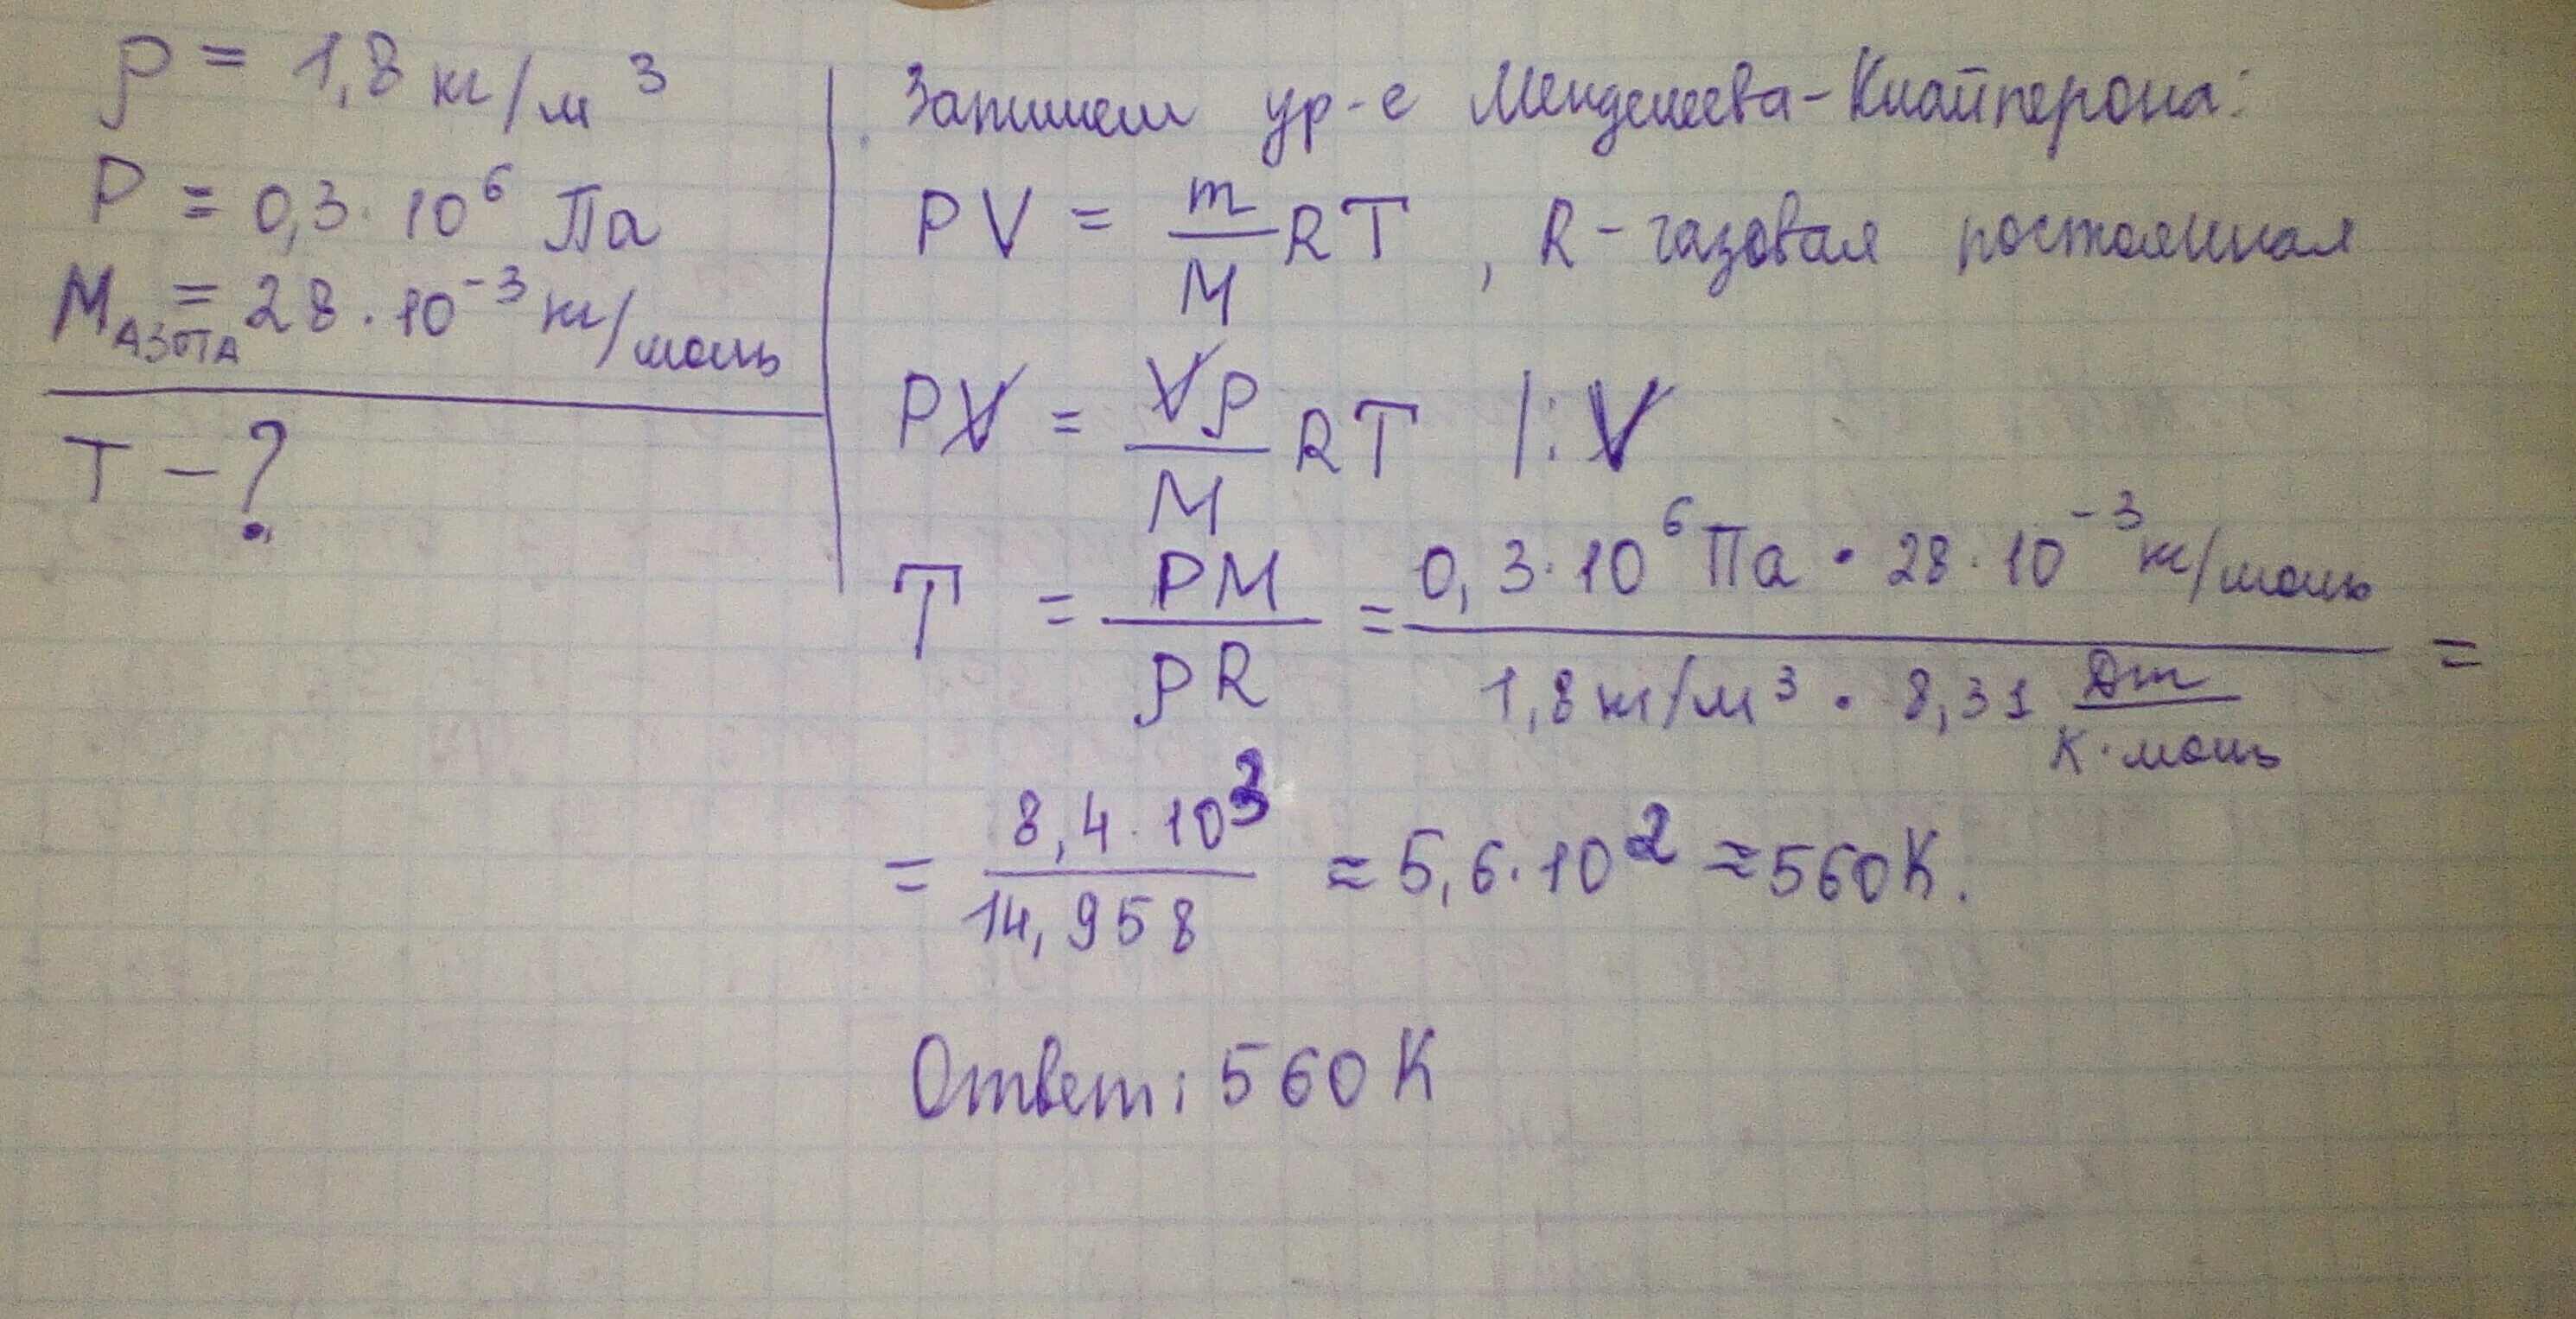 ρ = 1,8 кг/м³
P = 0,3 · 10⁶ Па
M АЗОТА = 28 · 10⁻³ кг/моль
T – ?
Запишем ур-е Менделеева-Клайперона:
PV = m/M RT , R - газовая постоянная
PV = Vρ/M RT |: V
T = PM/ρR = 0,3 · 10⁶ Па · 28 · 10⁻³ кг/моль / 1,8 кг/м³ · 8,31 Дж/К·моль =
= 8,4 · 10³/14,958 ≈ 5,6 · 10² ≈ 560 К.
Ответ: 560 К